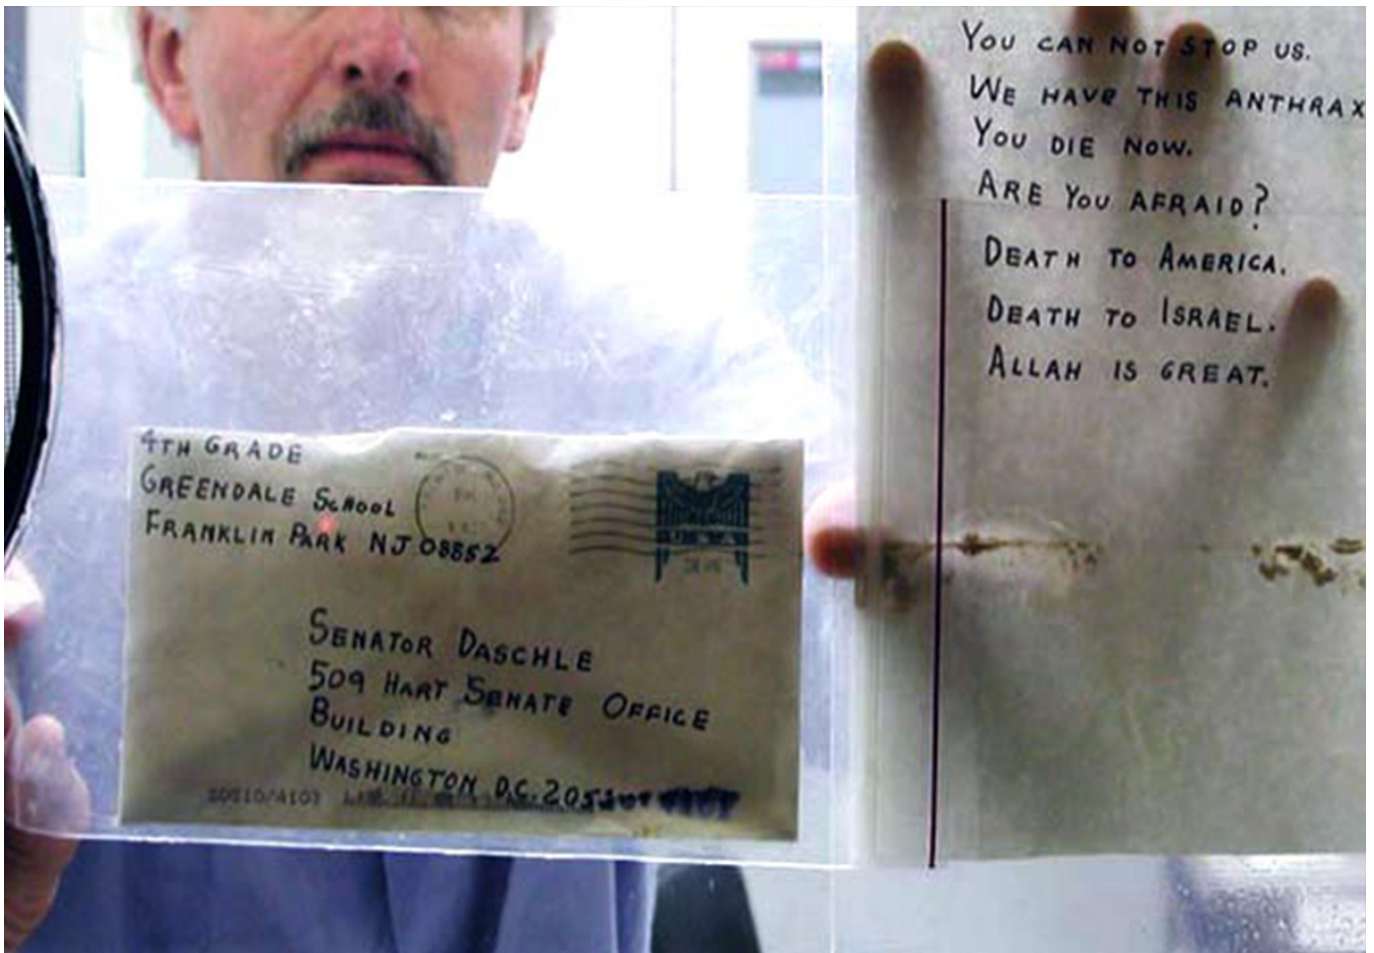 YOU CAN NOT STOP US.
WE HAVE THIS ANTHRAX
YOU DIE NOW.
ARE YOU AFRAID?
DEATH TO AMERICA.
DEATH TO ISRAEL.
ALLAH IS GREAT.
4TH GRADE
GREENDALE SCHOOL
FRANKLIN PARK NJ 08852
SENATOR DASCHLE
509 HART SENATE OFFICE
BUILDING
WASHINGTON D.C. 205
20510/4103